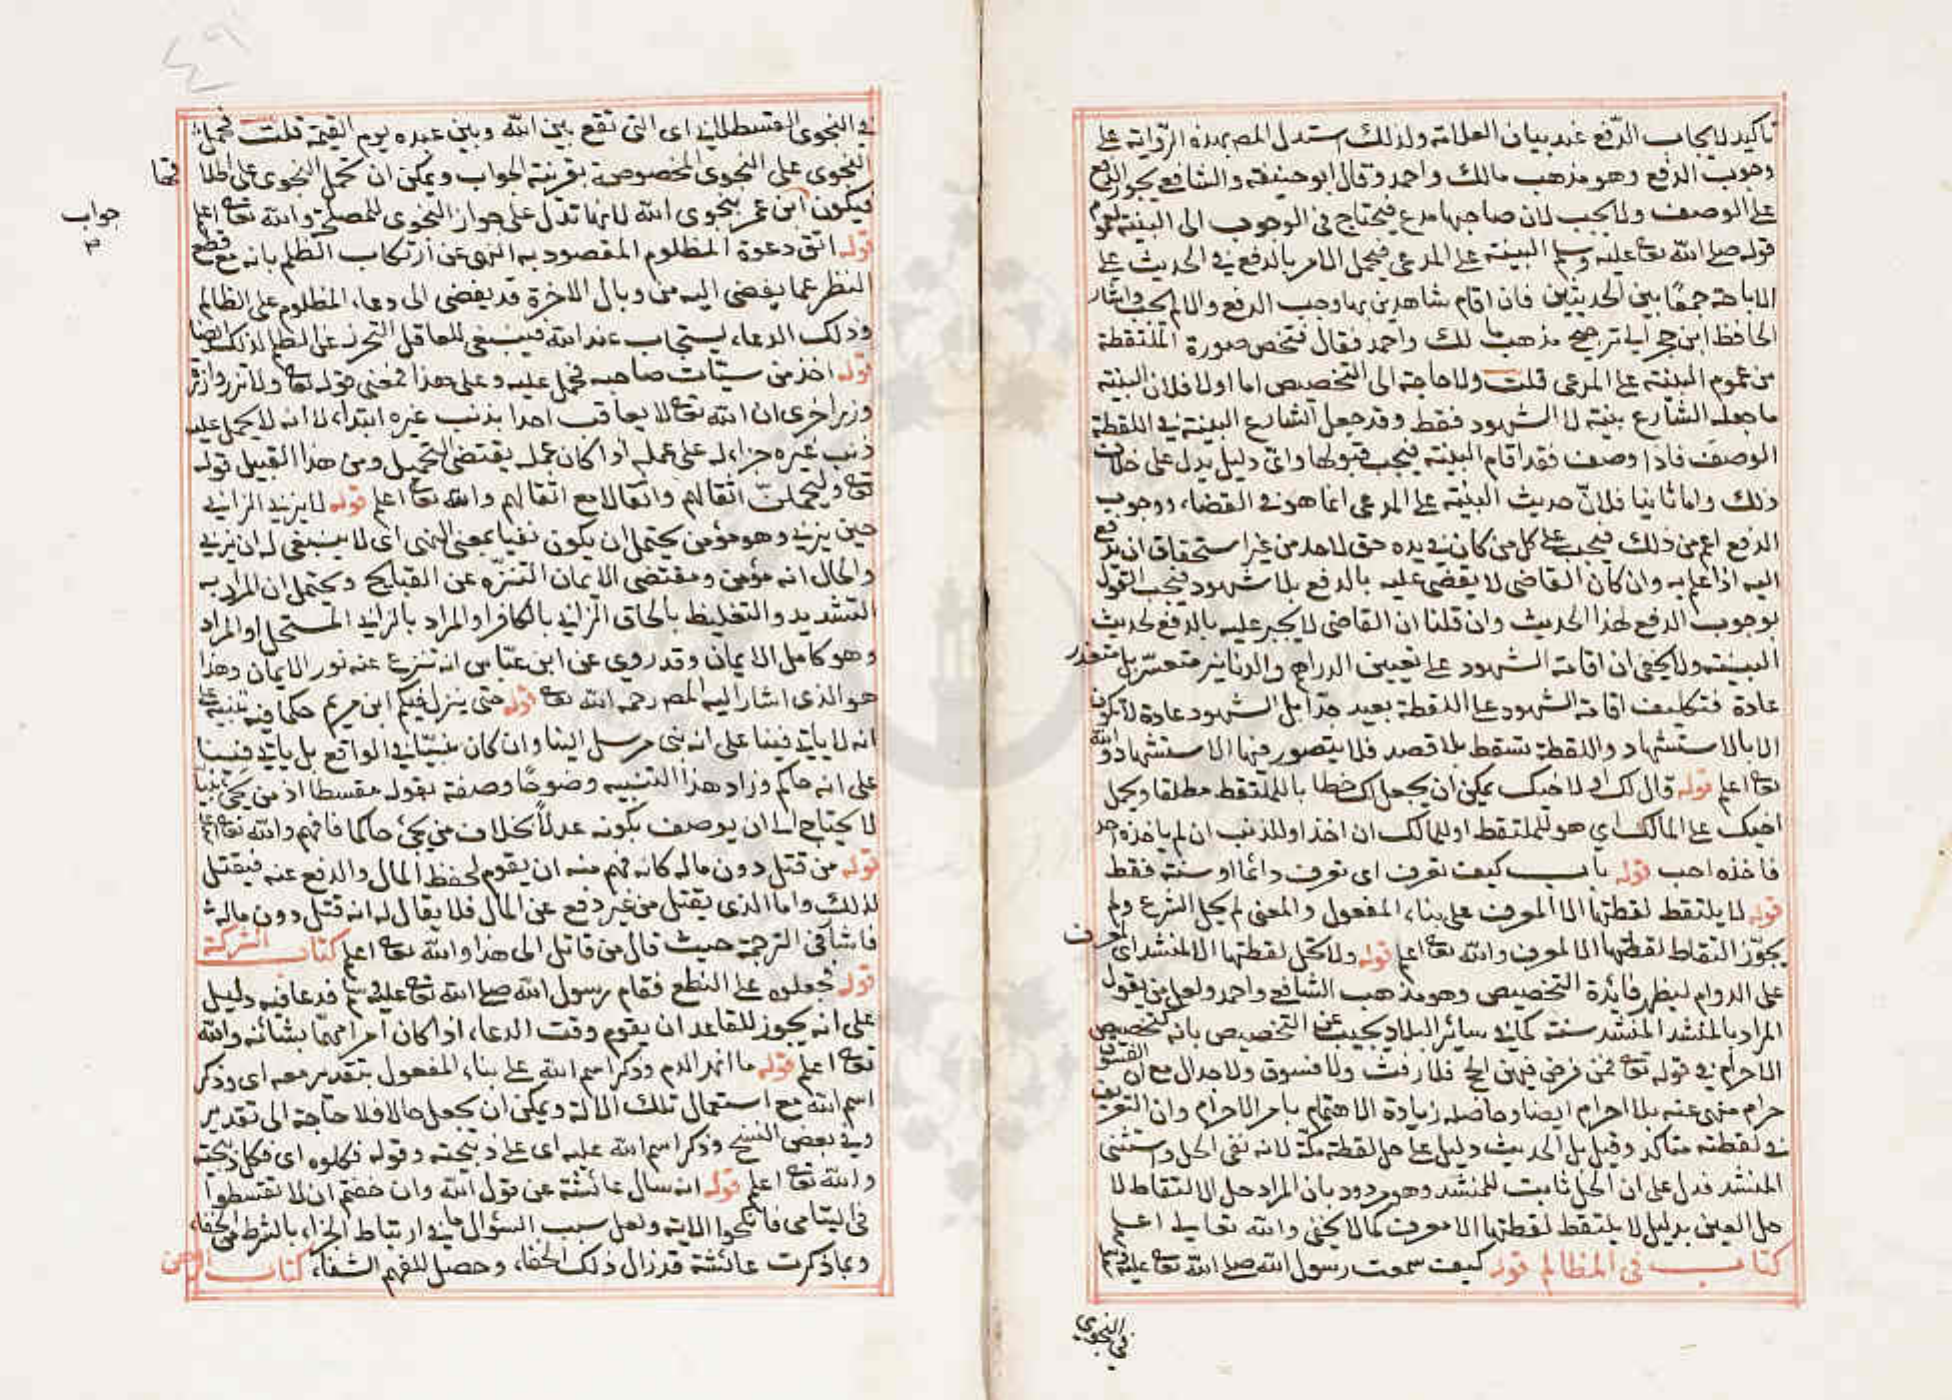 تأكيد لايجاب الدفع عند بيان العلامة ولذلك استدل المص بهذه الرواية على
وجوب الدفع وهو مذهب مالك واحمد وقال ابو حنيفة والشافعي يجوز الدفع
على الوصف ولا يجب لان صاحبها مدع فيحتاج في الوجوب الى البينة لعموم
قوله صلى الله تعا عليه وسلم البينة على المدعي فيحمل الامر بالدفع في الحديث على
الاباحة جمعًا بين الحديثين فان اقام شاهدين بها وجب الدفع والا لم يجب واشار
الحافظ ابن حجر الى ترجيح مذهب مالك واحمد فقال فتخص صورة الملتقطة
من عموم البينة على المدعي قلت ولا حاجة الى التخصيص اما اولا فلان البينة
ما جعله الشارع بينة لا الشهود فقط وقد جعل الشارع البينة في اللقطة
الوصف فاذا وصف فقد اقام البينة فيجب قبولها واي دليل يدل على خلاف
ذلك واما ثانيا فلانّ حديث البينة على المدعي انما هو في القضاء ووجوب
الدفع اعم من ذلك فيجب على كل من كان في يده حق لاحد من غير استحقاق ان يدفع
اليه اذا علم به وان كان القاضي لا يقضي عليه بالدفع بلا شهود فيجب القول
بوجوب الدفع لهذا الحديث وان قلنا ان القاضي لا يجبر عليه بالدفع لحديث
البينة ولا يخفى ان اقامة الشهود على تعيين الدراهم والدنانير متعسر بل متعذر
عادة فتكليف اقامة الشهود على اللقطة بعيد جدّا بل الشهود عادة لا تكون
الا بالاستشهاد واللقطة تسقط بلا قصد فلا يتصور فيها الاستشهاد والله
تعا اعلم قوله قال لك او لاخيك يمكن ان يجعل لك خطابا للملتقط مطلقا ويحمل
اخيك على المالك اي هو للملتقط او للمالك ان اخذ او للذئب ان لم ياخذه احد
فاخذه احب قوله باب كيف تعرف اى تعرف دائما او سنة فقط
قوله لا يلتقط لقطتها الا المعرف على بناء المفعول والمعنى لم يحل الشرع ولم
يجوّز التقاط لقطتها الا لمعرف والله تعا اعلم قوله ولا تحل لقطتها الا لمنشد اى لمعرف
على الدوام ليظهر فائدة التخصيص وهو مذهب الشافعي واحمد ولعل من يقول
المراد بالمنشد المنشد سنة كما في سائر البلاد يجيب عن التخصيص بانه كتخصيص
الاحرام في قوله تعا فمن فرض فيهن الحج فلا رفث ولا فسوق ولا جدال مع ان الفسوق
حرام منهى عنه بلا احرام ايضا وحاصله زيادة الاهتمام بامر الاحرام وان التعريف
في لقطته متأكد وقيل بل الحديث دليل على حل لقطة مكّة لانه نفى الحل واستثنى
المنشد فدل على ان الحل ثابت للمنشد وهو مردود بان المراد حل الالتقاط لا
حل العين بدليل لا يلتقط لقطتها الا معرف كما لا يخفى والله تعالى اعلم
كتاب في المظالم قوله كيف سمعت رسول الله صلى الله تعا عليه وسلم
في النجوى
في النجوى القسطلاني اى التي تقع بين الله وبين عبده يوم القيمة قلت فحمل
النجوى على النجوى المخصوصة بقرينة الجواب ويمكن ان تحمل النجوى على اطلاقها
فيكون جواب ابن عمر بنجوى الله لانها تدل على جواز النجوى للمصلحة والله تعا اعلم
قوله اتق دعوة المظلوم المقصود به النهى عن ارتكاب الظلم بانه مع قطع
النظر عما يفضى اليه من وبال الاخرة قد يفضى الى دعاء المظلوم على الظالم
وذلك الدعاء يستجاب عند الله فينبغى للعاقل التحرز عن الظلم لذلك ايضا
قوله اخذ من سيئات صاحبه فحمل عليه وعلى هذا فمعنى قوله تعا ولا تزر وازرة
وزر اخرى ان الله تعا لا يعاقب احدا بذنب غيره ابتداء لا انه لا يحمل عليه
ذنب غيره جزاء له على عمله اذا كان عمله يقتضى التحميل ومن هذا القبيل قوله
تعا وليحملنّ اثقالهم واثقالا مع اثقالهم والله تعا اعلم قوله لا يزني الزاني
حين يزني وهو مؤمن يحتمل ان يكون نفيا بمعنى النهى اى لا ينبغى له ان يزني
والحال انه مؤمن ومقتضى الايمان التنزه عن القبايح ويحتمل ان المراد به
التشديد والتغليظ بالحاق الزاني بالكافر او المراد بالزاني المستحل او المراد
وهو كامل الايمان وقد روي عن ابن عبّاس انه تنزع عنه نور الايمان وهذا
هو الذى اشار اليه المص رحمه الله تعا قوله حتى ينزل فيكم ابن مريم حكما فيه تنبيه على
انه لا ياتي فينا على انه نبى مرسل الينا وان كان نبيّا في الواقع بل ياتي فينا
على انه حاكم وزاد هذا التنبيه وضوحًا وصفة بقوله مقسطا اذ من يجئ نبيا
لا يحتاج الى ان يوصف بكونه عدلاً بخلاف من يجئ حاكما فافهم والله تعا اعلم
قوله من قتل دون ماله كانه فهم منه ان يقوم لحفظ المال والدفع عنه فيقتل
لذلك واما الذى يقتل من غير دفع عن المال فلا يقال له انه قتل دون ماله
فاشار في الترجمة حيث قال من قاتل الى هذا والله تعا اعلم كتاب الشركة
قوله فجعلوه على النطع فقام رسول الله صلى الله تعا عليه وسلم فدعا فيه دليل
على انه يجوز للقاعد ان يقوم وقت الدعاء اذا كان امرا مهمّا بشانه والله
تعا اعلم قوله ما انهر الدم وذكر اسم الله على بناء المفعول بتقدير معه اى وذكر
اسم الله مع استعمال تلك الالة ويمكن ان يجعل حالا فلا حاجة الى تقدير
وفي بعض النسخ وذكر اسم الله عليه اى على ذبيحته وقوله فكلوه اى فكل ذبيحته
والله تعا اعلم قوله انه سال عائشة عن قول الله وان خفتم ان لا تقسطوا
في اليتامى فانكحوا الاية ولعل سبب السؤال ما في ارتباط الجزاء بالشرط من الخفاء
وبما ذكرت عائشة قد زال ذلك الخفاء وحصل للفهم الشفاء كتاب الرهن